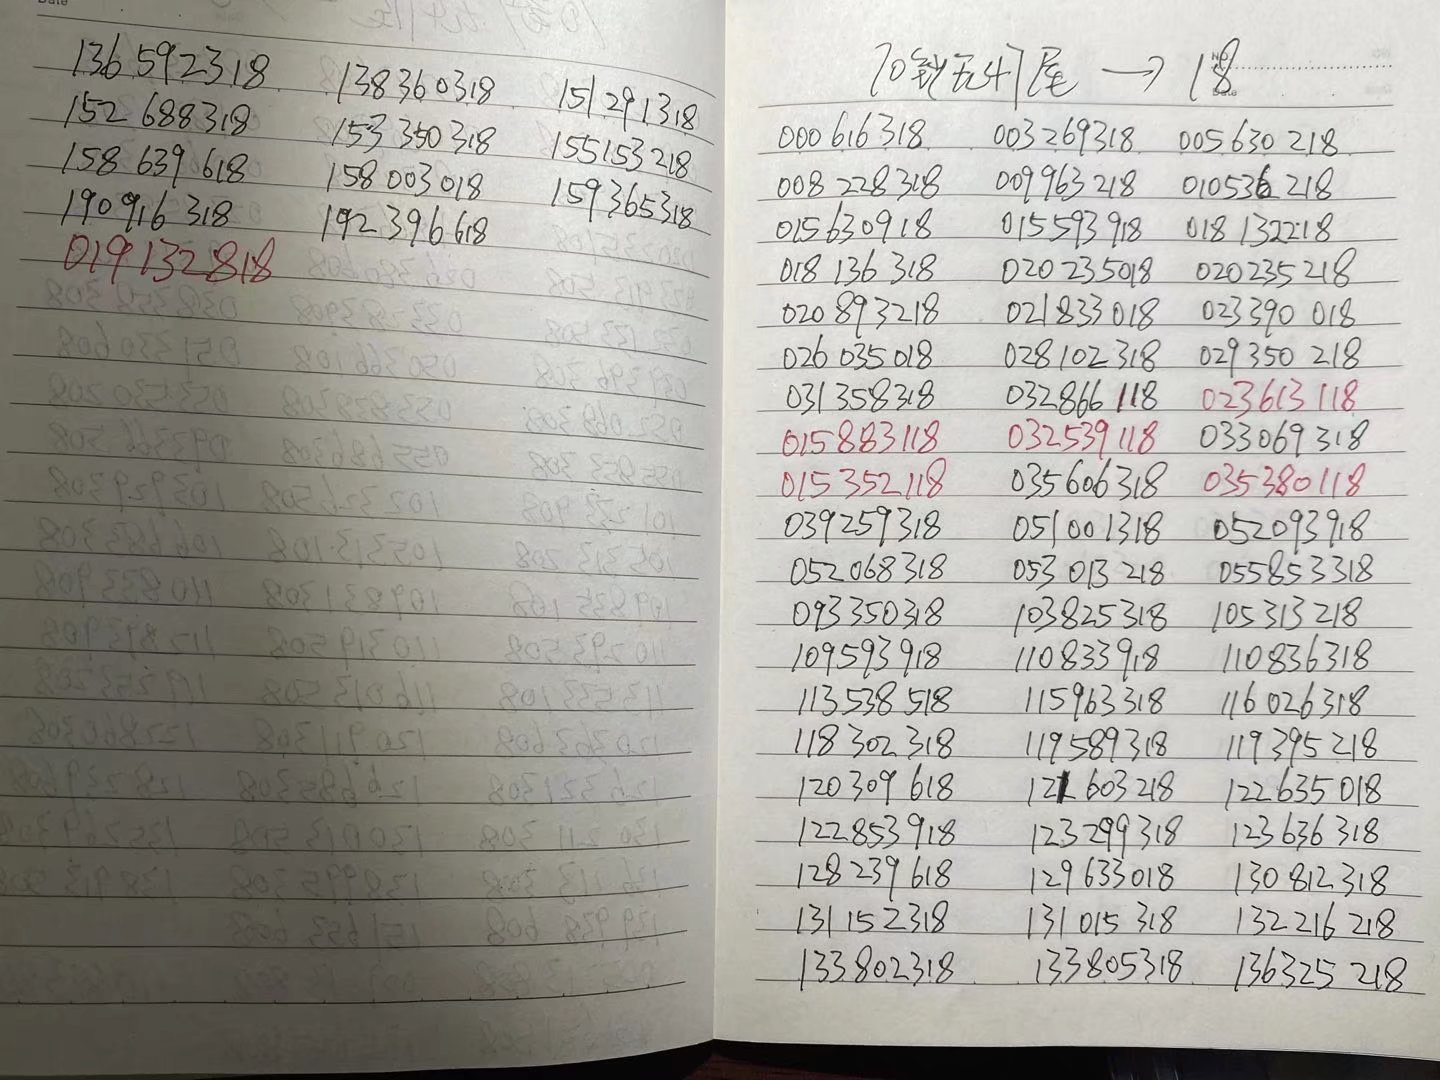 136592318 138360318 151291318
152688318 153350318 155153218
158639618 158003018 159365318
190916318 192396618
019132818
70钞无47尾 → 18
000616318 003269318 005630218
008228318 009963218 010536218
015630918 015593918 018132218
018136318 020235018 020235218
020893218 021833018 023390018
026035018 028102318 029350218
031358318 032866118 023613118
015883118 032539118 033069318
015352118 035606318 035380118
039259318 051001318 052093918
052068318 053013218 055853318
093350318 103825318 105313218
109593918 110833918 110836318
113538518 115963318 116026318
118302318 119589318 119395218
120309618 121603218 122635018
122853918 123299318 123636318
128239618 129633018 130812318
131152318 131015318 132216218
133802318 133805318 136325218